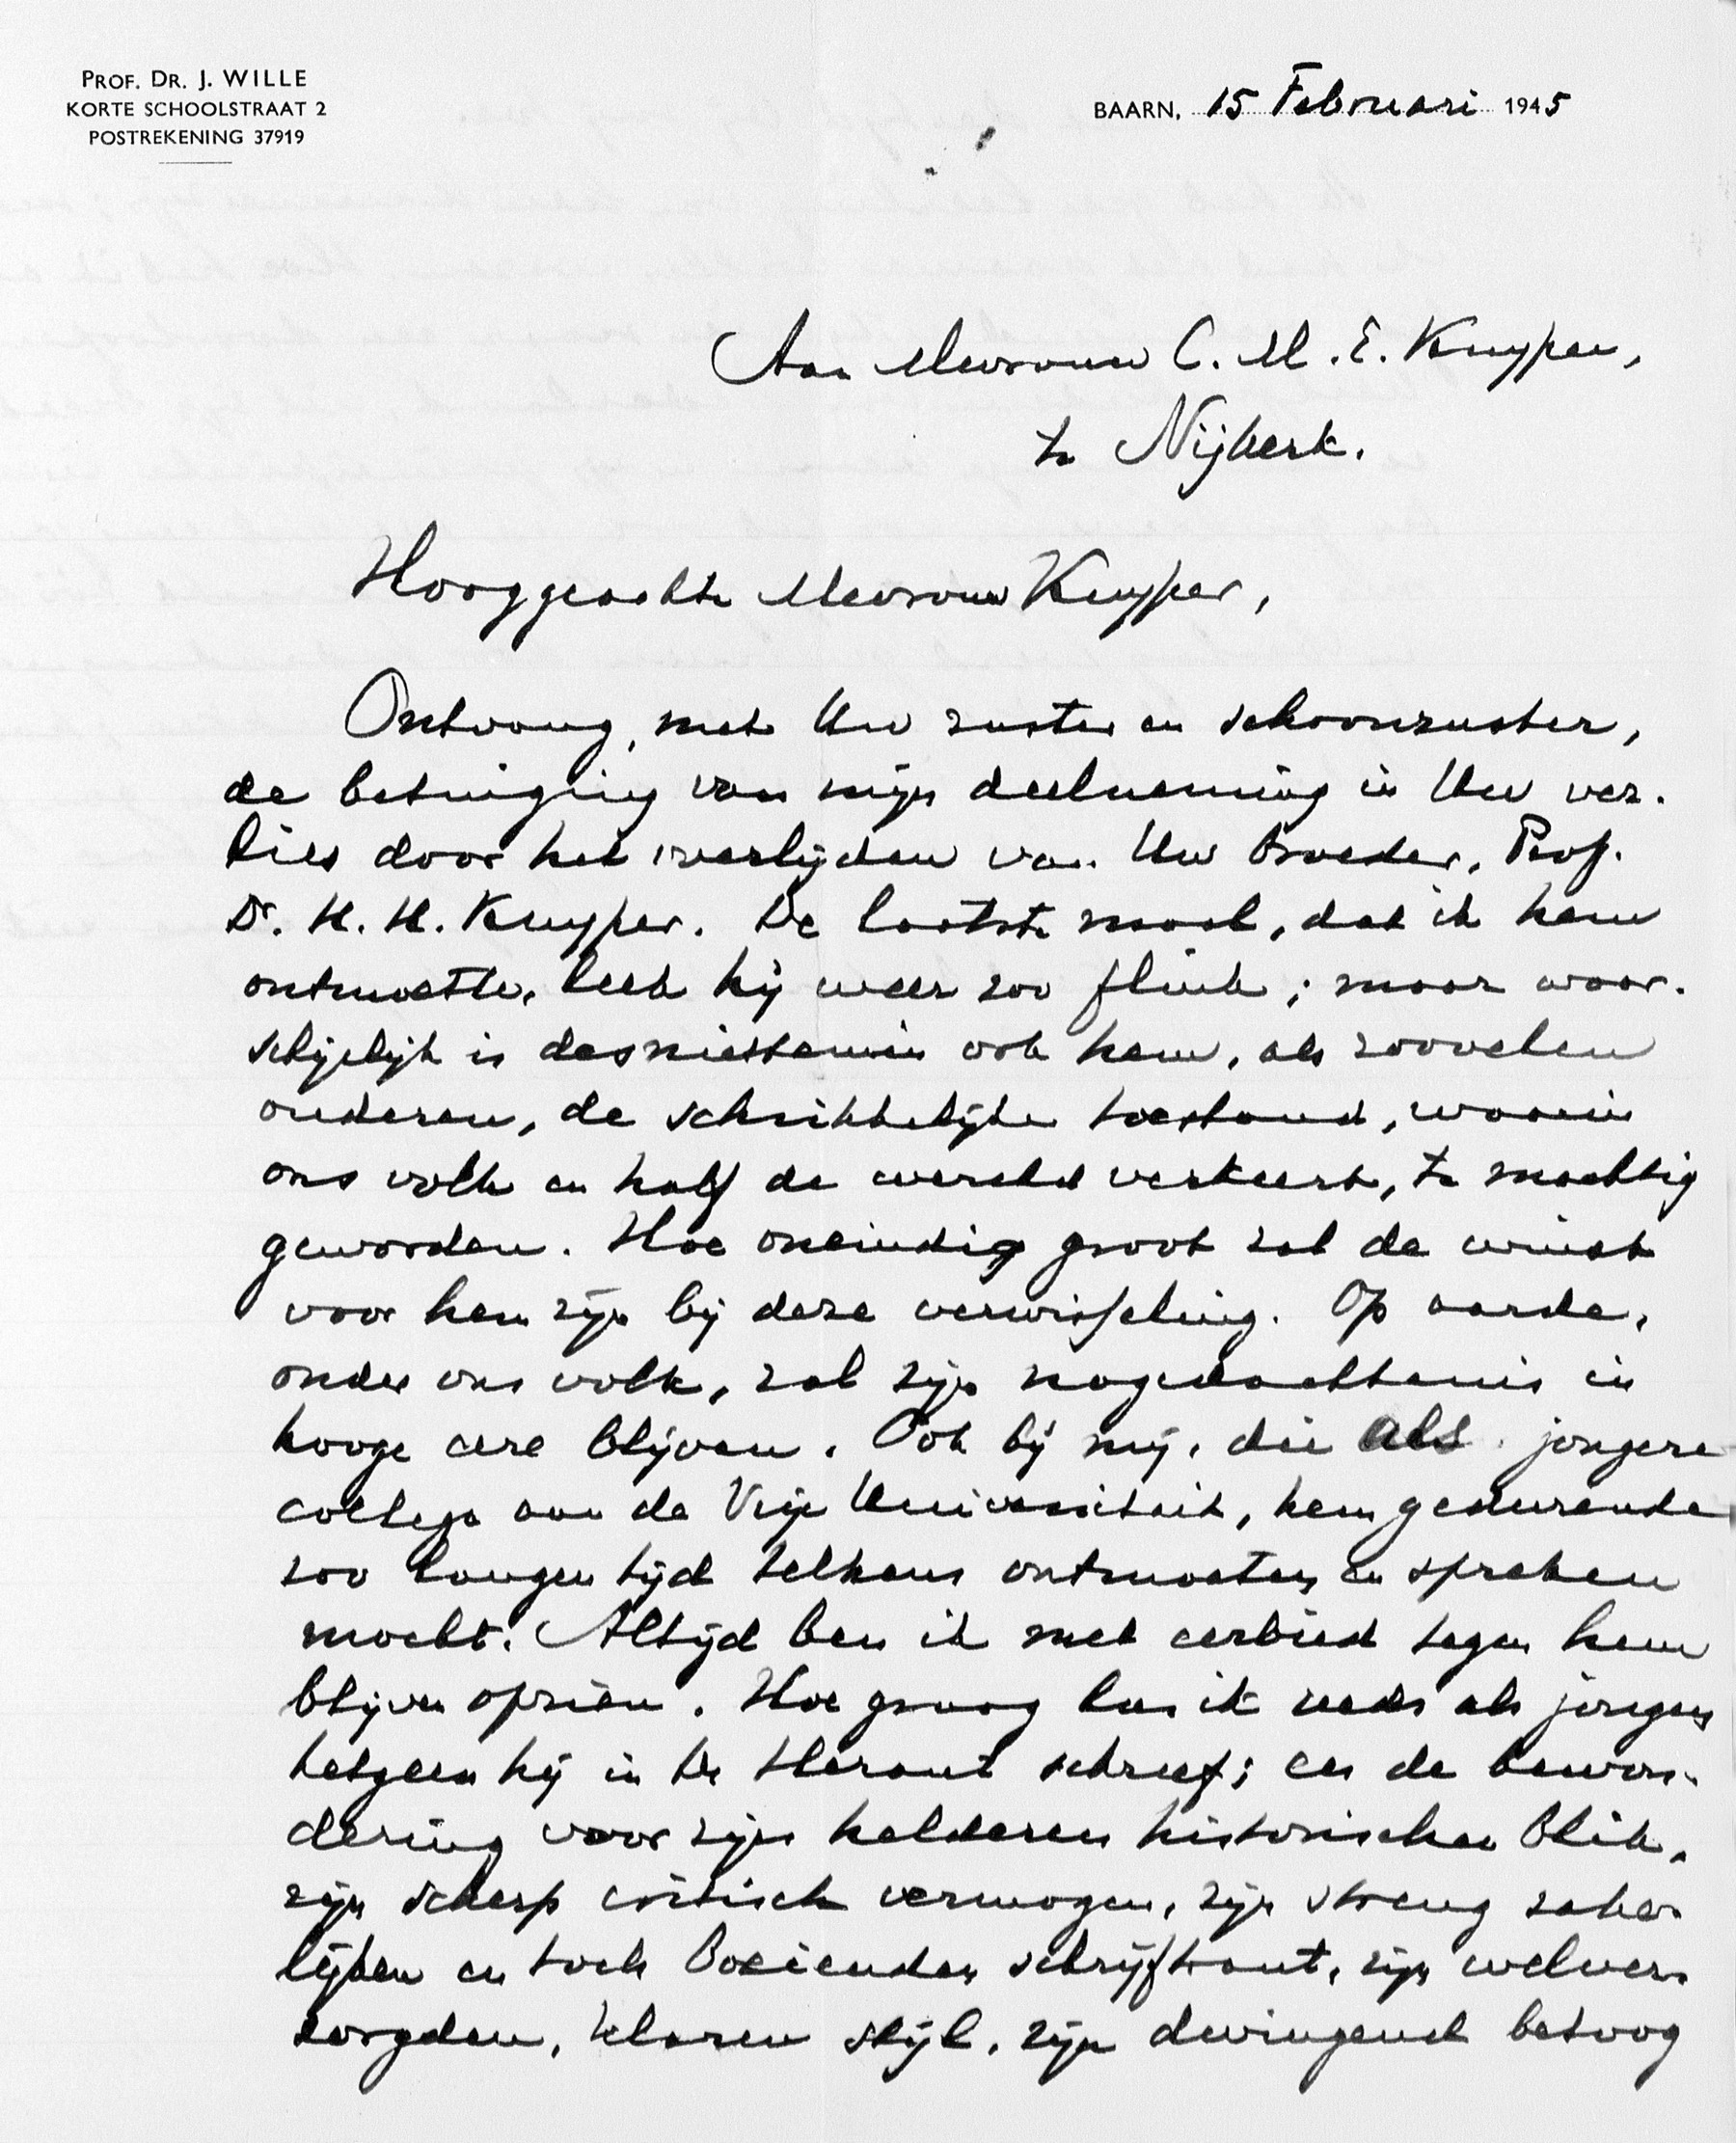 PROF. DR. J. WILLE
KORTE SCHOOLSTRAAT 2
POSTREKENING 37919
BAARN, 15 Februari 1945
Aan Mevrouw C. M. E. Kuyper,
te Nijkerk.
Hooggeachte Mevrouw Kuyper,
Ontvang, met Uw zuster en schoonzuster,
de betuiging van mijn deelneming in Uw ver-
lies door het overlijden van Uw broeder, Prof.
Dr. H. H. Kuyper. De laatste maal, dat ik hem
ontmoette, leek hij weer zoo flink; maar waar-
schijnlijk is desniettemin ook hem, als zoovelen
anderen, de schrikkelijke toestand, waarin
ons volk en half de wereld verkeert, te machtig
geworden. Hoe oneindig groot zal de winst
voor hem zijn bij deze verwisseling. Op aarde,
onder ons volk, zal zijn nagedachtenis in
hooge eere blijven. Ook bij mij, die als jongere
collega aan de Vrije Universiteit, hem gedurende
zoo langen tijd telkens ontmoeten en spreken
mocht. Altijd ben ik met eerbied tegen hem
blijven opzien. Hoe graag las ik reeds als jongen
hetgeen hij in De Heraut schreef; en de bewon-
dering voor zijn helderen historischen blik,
zijn scherp critisch vermogen, zijn streng zake-
lijken en toch boeienden schrijftrant, zijn welver-
zorgden, klaren stijl, zijn dwingend betoog